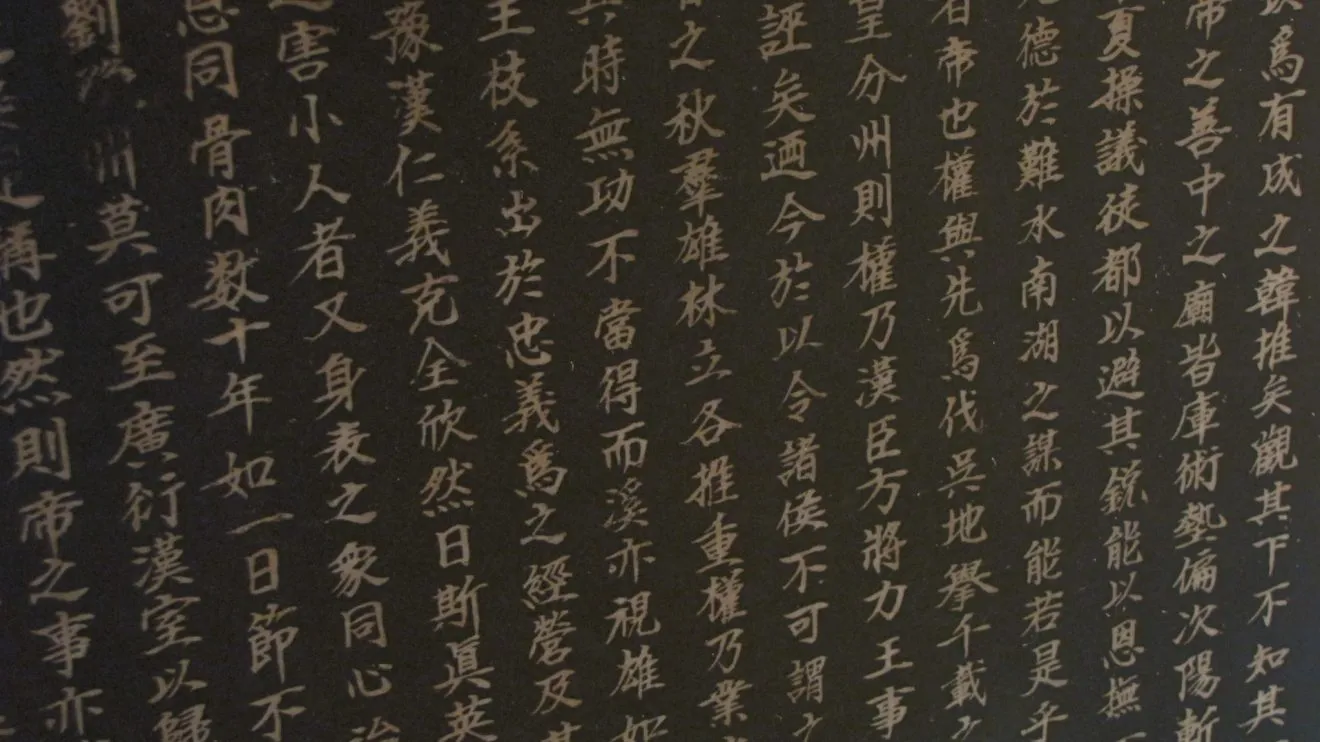 以爲有成之韓推矣觀其下不知其
帝之善中之廟皆庫術藝偏次陽斬
夏操議徒都以避其銳能以恩撫
德於難水南湖之謀而能若是乎
者帝也權與先爲伐吳地舉千載之
皇分州則權乃漢臣方將力王事
誣矣迺今於以令諸侯不可謂之
之秋羣雄林立各推重權乃業
其時無功不當得而溪亦視雄如
王枝系出於忠義爲之經營及其
豫漢仁義克全欣然日斯眞英
之害小人者又身衰之衆同心治
思同骨肉数十年如一日節不
劉 州莫可至廣衍漢室以歸
也然則帝之事亦